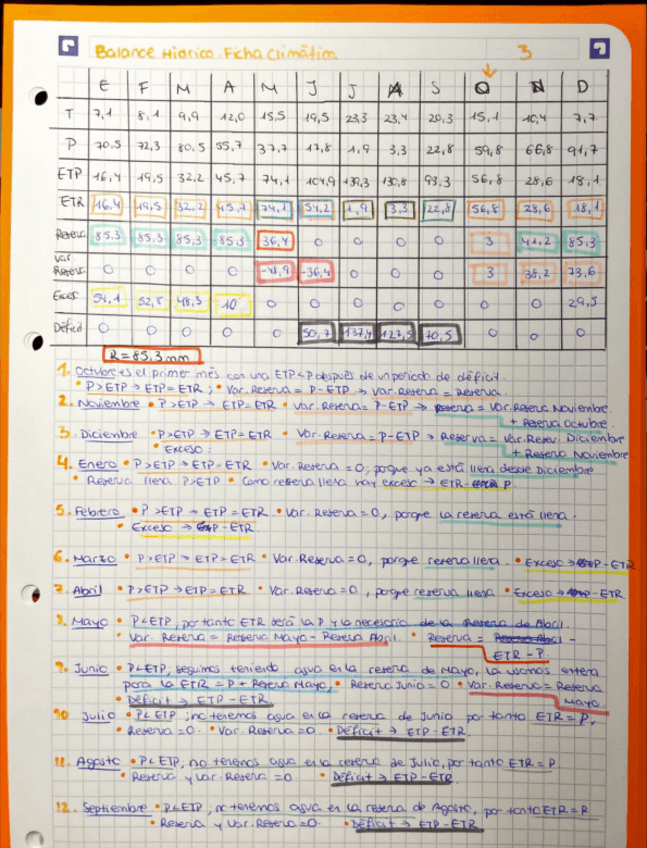 Balance Hídrico. Ficha Climática 3
E F M A M J J A S O N D
T 7,1 8,1 9,9 12,0 15,5 19,5 23,3 23,4 20,3 15,1 10,4 7,7
P 70,5 72,3 80,5 55,7 37,7 17,8 1,9 3,3 22,8 59,8 66,8 91,7
ETP 16,4 19,5 32,2 45,7 74,1 104,9 139,3 130,8 93,3 56,8 28,6 18,1
ETR 16,4 19,5 32,2 45,7 74,1 54,2 1,9 3,3 22,8 56,8 28,6 18,1
Reserva 85,3 85,3 85,3 85,3 36,4 0 0 0 0 3 41,2 85,3
Var. Reserva 0 0 0 0 -48,9 -36,4 0 0 0 3 38,2 73,6
Exceso 54,1 52,8 48,3 10 0 0 0 0 0 0 0 29,5
Déficit 0 0 0 0 0 50,7 137,4 127,5 70,5 0 0 0
R=85,3 mm
1. Octubre es el primer mes con una ETP<P después de un periodo de déficit.
• P>ETP → ETP=ETR ; • Var. Reserva = P-ETP → Var. Reserva = Reserva.
2. Noviembre • P>ETP → ETP=ETR • Var. Reserva= P-ETP → Reserva = Var. Reserva Noviembre
+ Reserva Octubre.
3. Diciembre • P>ETP → ETP=ETR • Var. Reserva = P-ETP → Reserva= Var. Reser. Diciembre
• Exceso: + Reserva Noviembre
4. Enero • P>ETP → ETP=ETR • Var. Reserva = 0; porque ya está llena desde Diciembre
• Reserva llena P>ETP • Como reserva llena hay exceso → ETR- P.
5. Febrero • P >ETP → ETP=ETR • Var. Reserva = 0, porque la reserva está llena.
• Exceso → P-ETR.
6. Marzo • P>ETP → ETP=ETR • Var. Reserva=0, porque reserva llena. • Exceso → P-ETR
7. Abril • P>ETP → ETP=ETR • Var. Reserva=0, porque reserva llena • Exceso → P-ETR
8. Mayo • P<ETP, por tanto ETR será la P y lo necesario de la Reserva de Abril.
• Var. Reserva = Reserva Mayo - Reserva Abril. • Reserva = Reserva Abril -
ETR - P.
9. Junio • P<ETP; seguimos teniendo agua en la reserva de Mayo, la usamos entera
para la ETR = P + Reserva Mayo, • Reserva Junio = 0 • Var. Reserva = Reserva
• Déficit → ETP-ETR. Mayo.
10. Julio • P<ETP; no tenemos agua en la reserva de Junio por tanto ETR=P,
• Reserva=0. • Var. Reserva=0. • Déficit → ETP-ETR.
11. Agosto • P<ETP; no tenemos agua en la reserva de Julio, por tanto ETR=P
• Reserva y Var. Reserva =0 • Déficit → ETP-ETR.
12. Septiembre • P<ETP; no tenemos agua en la reserva de Agosto, por tanto ETR=P
• Reserva y Var. Reserva=0. • Déficit → ETP-ETR